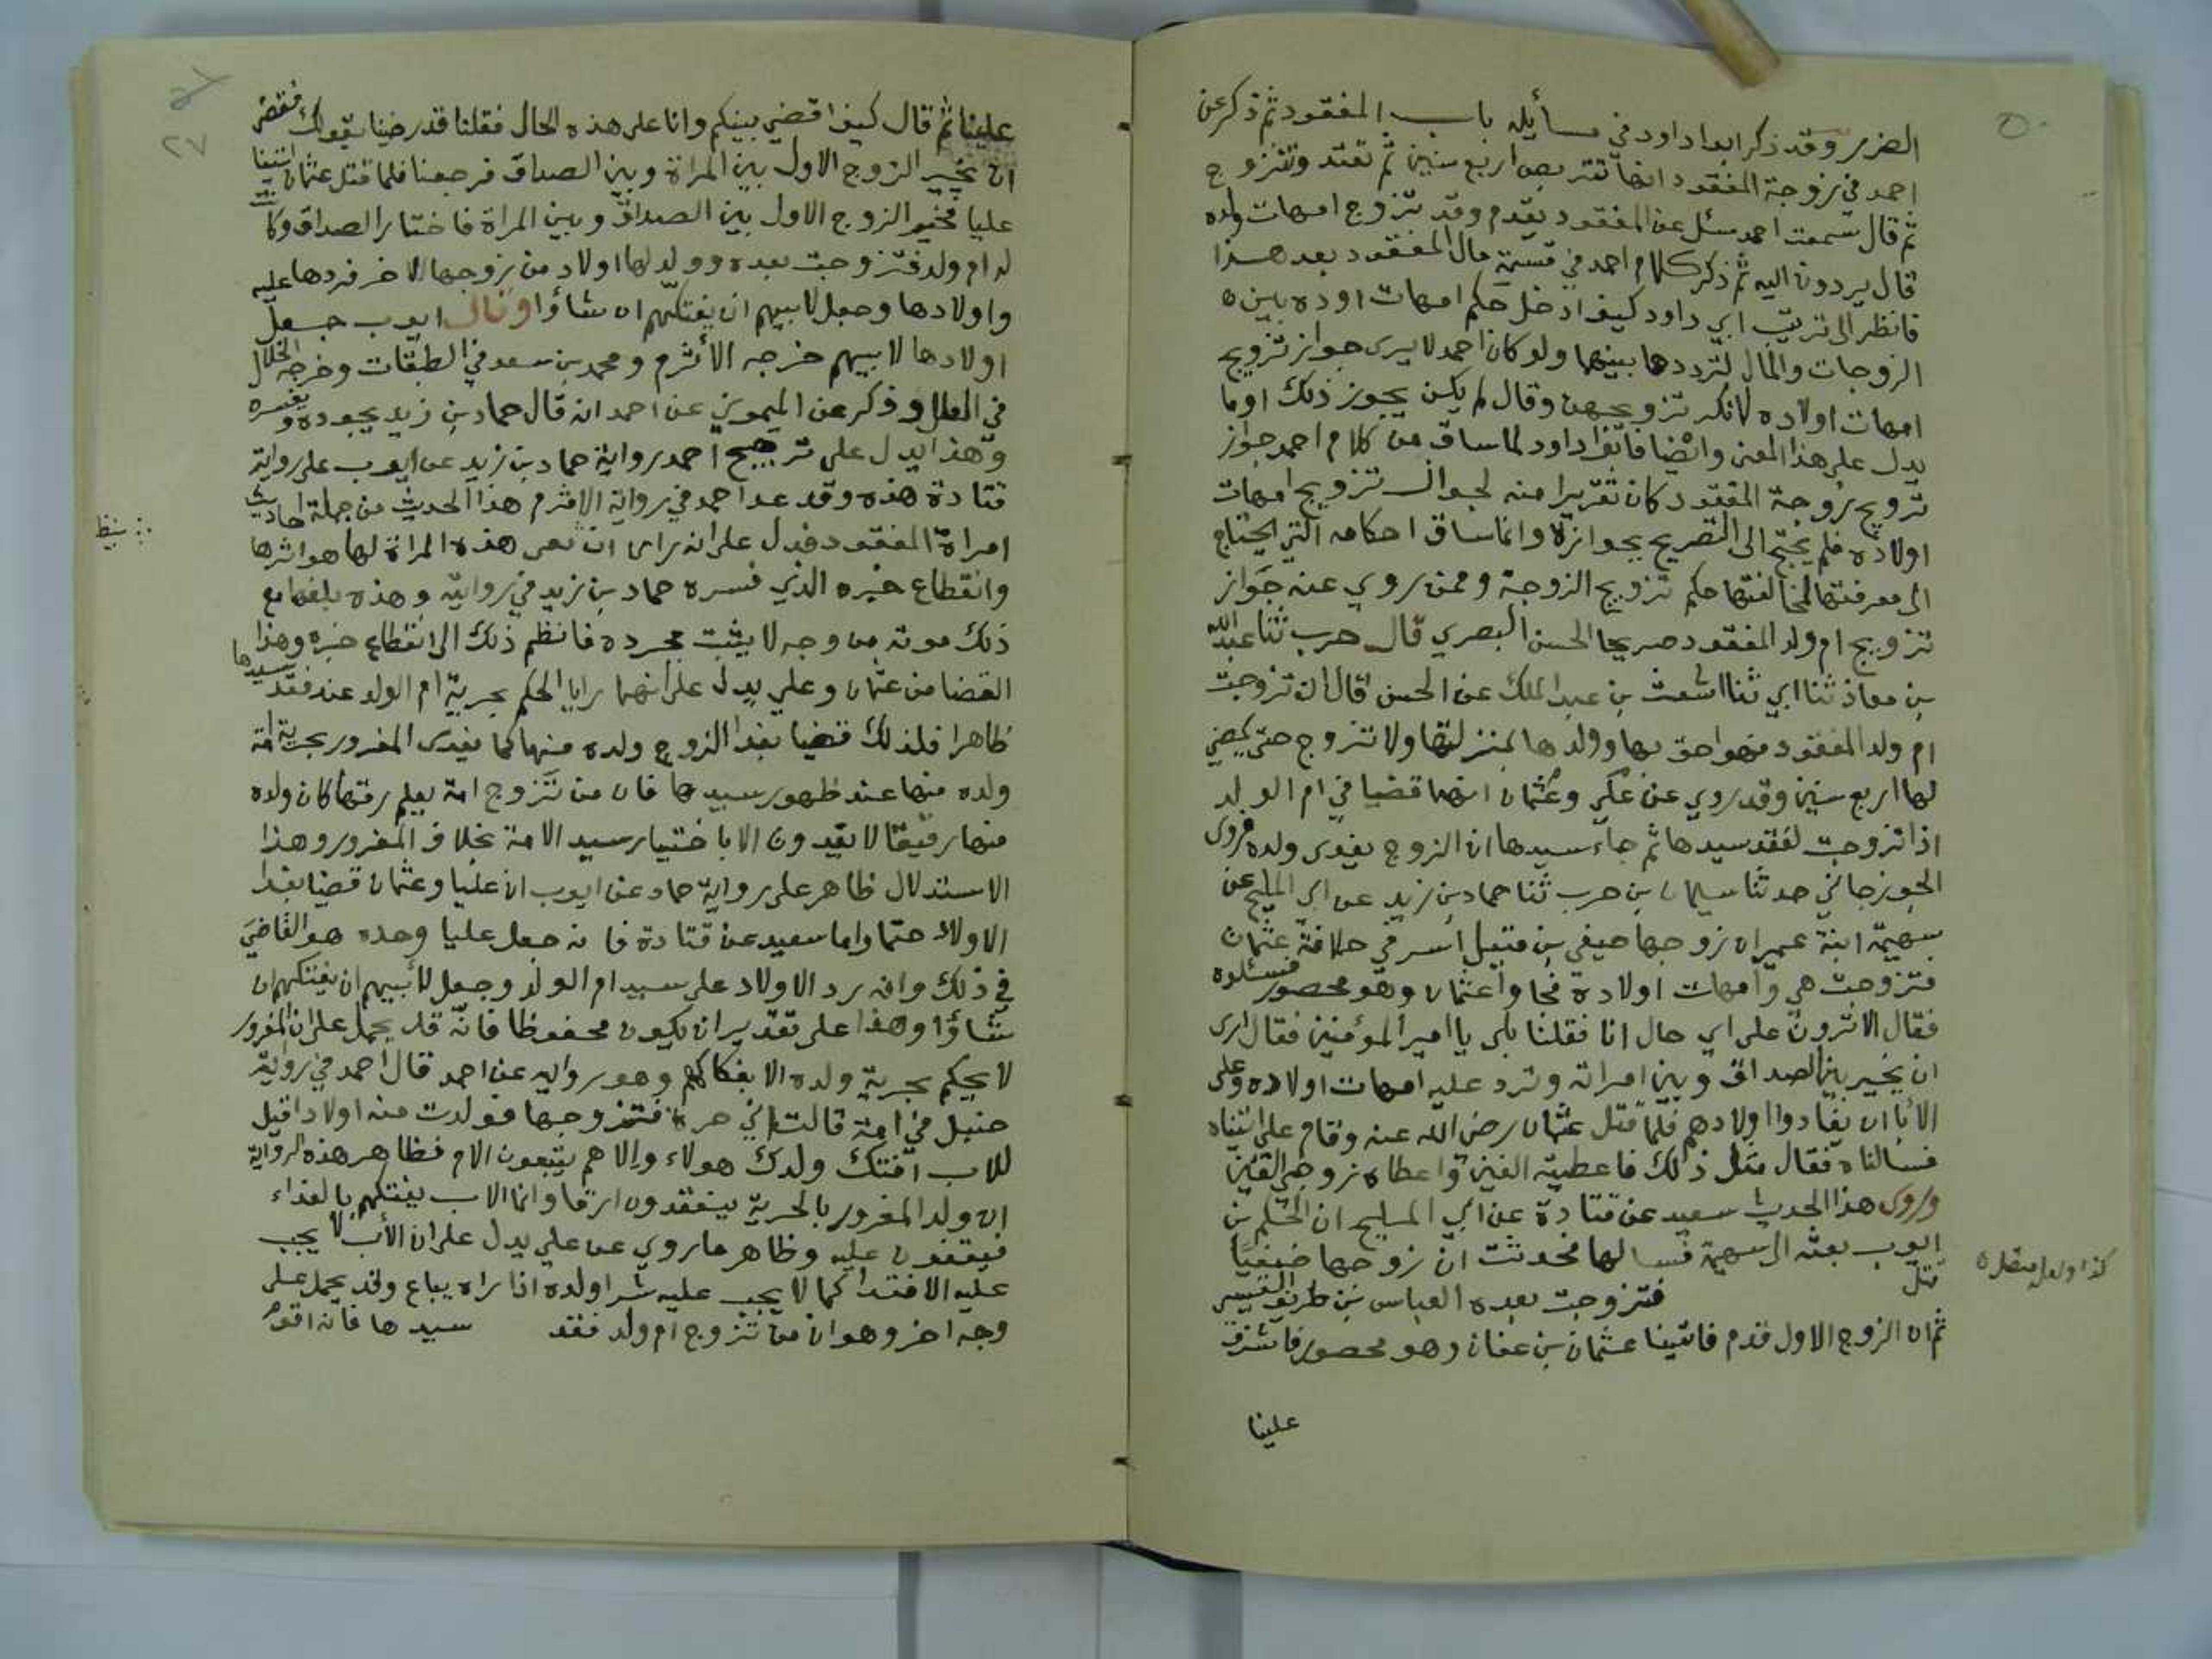 ٥٠
الضرر وقد ذكر ابوا داود في مسأيله باب المفقود ثم ذكر عن
احمد في زوجة المفقود انها تتربص اربع سنين ثم تعتد وتتزوج
ثم قال سمعت احمد سئل عن المفقود يقدم وقد تزوج امهات ولده
قال يردون اليه ثم ذكر كلام احمد في قسمة مال المفقود بعد هذا
فانظر الى ترتيب ابي داود كيف ادخل حكم امهات اوده بين
الزوجات والمال لترددها بينهما ولو كان احمد لا يرى جواز تزويج
امهات اولاده لانكر تزويجهن وقال لم يكن يجوز ذلك اوما
يدل على هذا المعنى وايضا فابوا داود لما ساق من كلام احمد جواز
تزويج زوجة المفقود كان تقريرا منه لجواز تزويج امهات
اولاده فلم يحتج الى التصريح بجوازه وانما ساق احكامه التي يحتاج
الى معرفتها لمخالفتها حكم تزويج الزوجة وممن روي عنه جواز
تزويج ام ولد المفقود صريحا الحسن البصري قال حرب ثنا عبيد الله
بن معاذ ثنا ابي ثنا اشعث بن عبد الملك عن الحسن قال ان تزوجت
ام ولد المفقود فهو احق بها وولدها بمنزلتها ولا تزوج حتى يمضي
لها اربع سنين وقد روي عن علي وعثمان انهما قضيا في ام الولد
اذا تزوجت لفقد سيدها ثم جاء سيدها ان الزوج يفدى ولده فروى
الجوزجاني حدثنا سليمان بن حرب ثنا حماد بن زيد عن ابي المليح عن
سهيمة ابنة عمير ان زوجها صيفي بن فتيل اسر في خلافة عثمان
فتزوجت هي وامهات اولاده فجاوا عثمان وهو محصور فسئلوه
فقال الا ترون على اي حال انا فقلنا بلى يا امير المؤمنين فقال ارى
ان يخير بين الصداق وبين امراته وترد عليه امهات اولاده وعلى
الآبا ان يفادوا اولادهم فلما قتل عثمان رضى الله عنه وقام علي اتيناه
فسالناه فقال مثل ذلك فاعطيته الفين واعطاه زوجي الفين
وروى هذا الحديث سعيد عن قتادة عن ابي المليح ان الحكم بن
ايوب بعثه الى سهيمة فسالها فحدثت ان زوجها صيفيا
قتل فتزوجت بعده العباس بن طريف القيسي
كذا ولعل
ثم ان الزوج الاول قدم فاتينا عثمان بن عفان وهو محصور فاشرف
علينا
٢٧
علينا ثم قال كيف اقضي بينكم وانا على هذه الحال فقلنا قد رضينا بقولك فقضى
ان يخير الزوج الاول بين المراة وبين الصداق فرجعنا فلما قتل عثمان اتينا
عليا فخير الزوج الاول بين الصداق وبين المراة فاختار الصداق وكا
له ام ولد فتزوجت بعده وولد لها اولاد من زوجها الاخر فردها عليه
واولادها وجعل لابيهم ان يفتكهم ان شاؤا وقال ايوب جعل
اولادها لابيهم خرجه الأثرم ومحمد بن سعد في الطبقات وخرجه الخلال
في العلل وذكر عن الميموني عن احمد انه قال حماد بن زيد يجوده ويفسره
وهذا يدل على ترجيح احمد رواية حماد بن زيد عن ايوب على رواية
قتادة هذه وقد عد احمد في رواية الاثرم هذا الحديث من جملة احاديث
امراة المفقود فدل على انه راى ان نعى هذه المراة لها هو اثرها
وانقطاع خبره الذي فسره حماد بن زيد في روايته وهذه بلغها مع
ذلك موته من وجه لا يثبت بمجرده فانظم ذلك الى انقطاع خبره وهذا
القضا من عثمان وعلي يدل على انهما رايا الحكم بحرية ام الولد عند فقد سيدها
ظاهرا فلذلك قضيا بفدا الزوج ولده منها كما يفدى المغرور بحرية امة
ولده منها عند ظهور سيدها فان من تزوج امة يعلم رقها كان ولده
منها رقيقا لا يفدون الا باختيار سيد الامة بخلاف المغرور وهذا
الاستدلال ظاهر على رواية حماد عن ايوب ان عليا وعثمان قضيا بفدا
الاولاد حتما واما سعيد عن قتادة فانه جعل عليا وحده هو القاضي
في ذلك وانه رد الاولاد على سيد ام الولد وجعل لأبيهم ان يفتكهم ان
شاؤا وهذا على تقدير ان يكون محفوظا فانه قد يحمل على ان المغرور
لا يحكم بحرية ولده الا بفكاكهم وهو رواية عن احمد قال احمد في رواية
حنبل في امة قالت اني حرة فتزوجها فولدت منه اولادا قيل
للاب افتك ولدك هولاء والا هم يتبعون الام فظاهر هذه الرواية
ان ولد المغرور بالحرية ينعقدون ارقا وانما الاب يفتكهم بالفداء
فيعتقون عليه وظاهر ما روي عن علي يدل على ان الأب لا يجب
عليه الافتدا كما لا يجب عليه شرا ولده اذا راه يباع وقد يحمل على
وجه اخر وهو ان من تزوج ام ولد فقد سيدها فانه